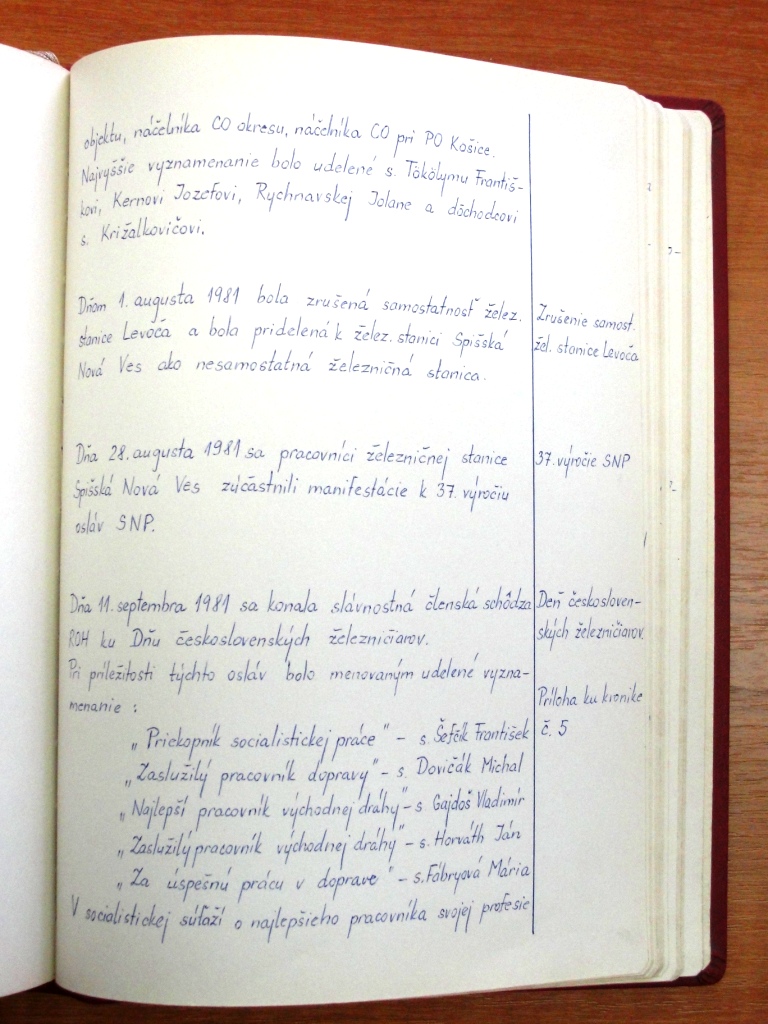 objektu, náčelníka CO okresu, náčelníka CO pri PO Košice.
Najvyššie vyznamenanie bolo udelené s. Tökölymu Františ-
kovi, Kernovi Jozefovi, Rychnavskej Jolane a dôchodcovi
s. Križalkovičovi.
Dňom 1. augusta 1981 bola zrušená samostatnosť želez.
stanice Levoča a bola pridelená k želez. stanici Spišská
Nová Ves ako nesamostatná železničná stanica.
Zrušenie samost.
žel. stanice Levoča
Dňa 28. augusta 1981 sa pracovníci železničnej stanice
Spišská Nová Ves zúčastnili manifestácie k 37. výročiu
osláv SNP.
37. výročie SNP
Dňa 11. septembra 1981 sa konala slávnostná členská schôdza
ROH ku Dňu československých železničiarov.
Pri príležitosti týchto osláv bolo menovaným udelené vyzna-
menanie :
„Priekopník socialistickej práce" - s. Šefčík František
„Zaslužilý pracovník dopravy" - s. Dovičák Michal
„Najlepší pracovník východnej dráhy" - s Gajdoš Vladimír
„Zaslužilý pracovník východnej dráhy" - s. Horváth Ján
„Za úspešnú prácu v doprave" - s. Fábryová Mária
V socialistickej súťaží o najlepšieho pracovníka svojej profesie
Deň českosloven-
ských železničiarov.
Príloha ku kronike
č. 5